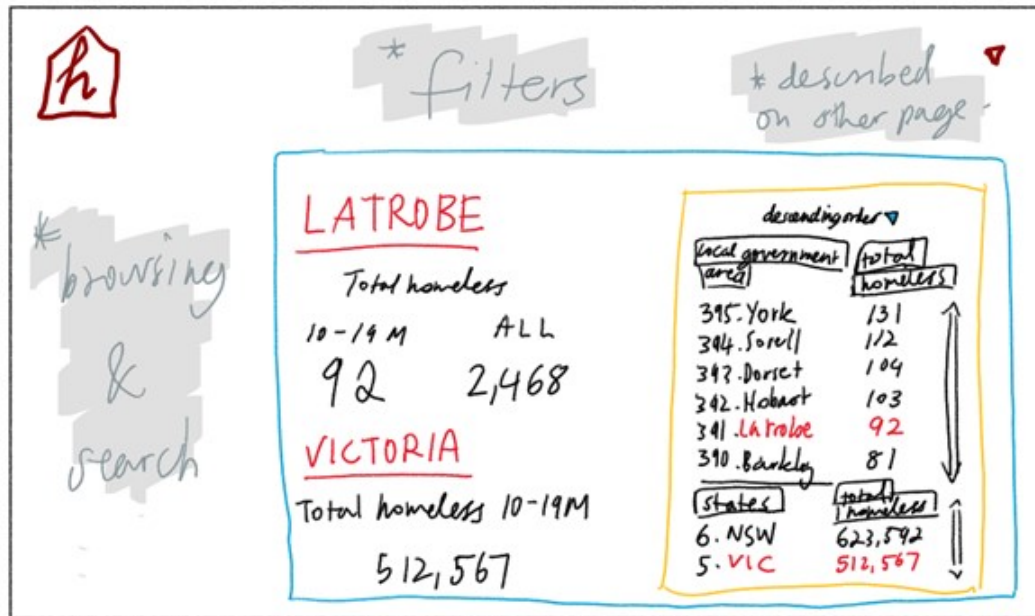 h
* filters
* described
on other page
* browsing
&
search
LATROBE
Total homeless
10-19 M ALL
92 2,468
VICTORIA
Total homeless 10-19M
512,567
descending order
local government
area
total
homeless
395. York 131
394. Sorell 112
393. Dorset 104
392. Hobart 103
391. Latrobe 92
390. Barkley 81
states
total
homeless
6. NSW 623,592
5. VIC 512,567